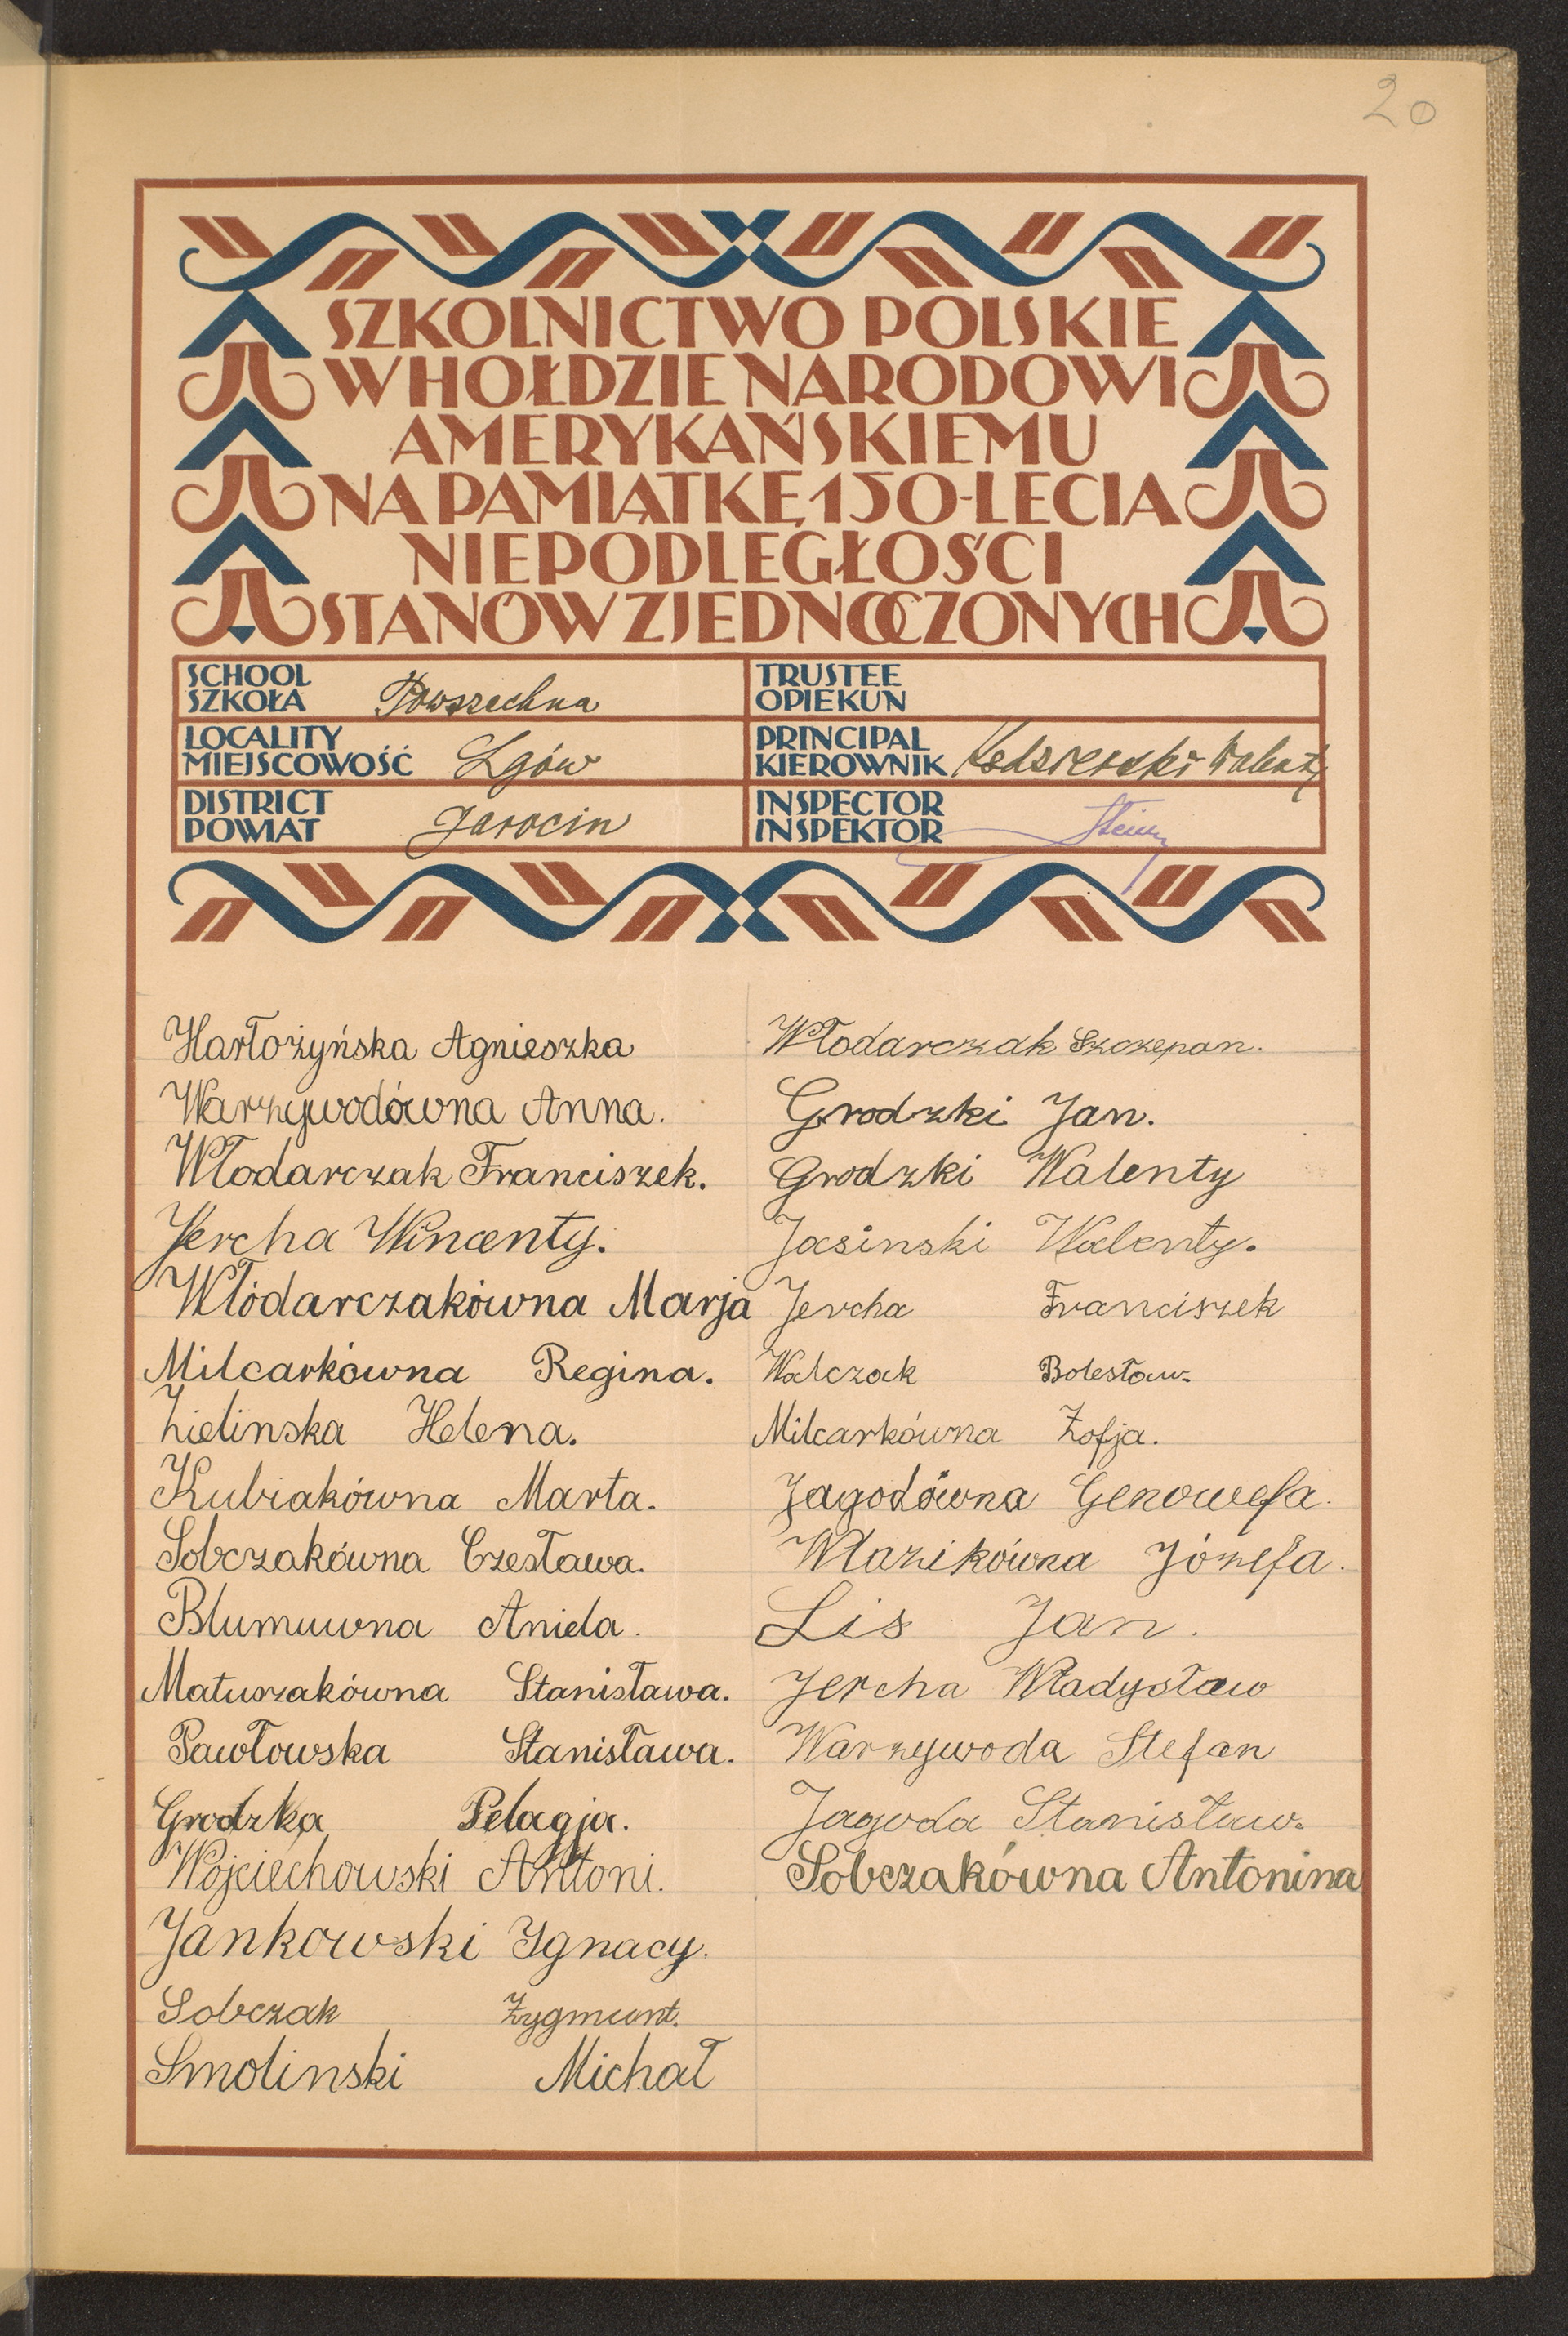 20
SZKOLNICTWO POLSKIE
W HOŁDZIE NARODOWI
AMERYKAŃSKIEMU
NA PAMIĄTKĘ 150-LECIA
NIEPODLEGŁOŚCI
STANÓW ZJEDNOCZONYCH
SCHOOL
SZKOŁA Powszechna
TRUSTEE
OPIEKUN
LOCALITY
MIEJSCOWOŚĆ Lgów
PRINCIPAL
KIEROWNIK Kedzierski Walenty
DISTRICT
POWIAT Jarocin
INSPECTOR
INSPEKTOR
Hartożyńska Agnieszka
Warzywodówna Anna.
Włodarczak Franciszek.
Jercha Wincenty.
Włódarczakówna Marja
Milcarkówna Regina.
Zielinska Helena.
Kubiakówna Marta.
Sobczakówna Czesława.
Blumuwna Aniela.
Matuszakówna Stanisława.
Pawłowska Stanisława.
Grodzka Pelagja.
Wojciechowski Antoni.
Jankowski Ignacy.
Sobczak Zygmunt.
Smolinski Michał
Włodarczak Szczepan.
Grodzki Jan.
Grodzki Walenty
Jasinski Walenty.
Jercha Franciszek
Walczak Bolesław.
Milcarkówna Zofja.
Jagodówna Genowefa.
Włazikówna Józefa.
Lis Jan.
Jercha Władysław
Warzywoda Stefan
Jagoda Stanisław.
Sobczakówna Antonina